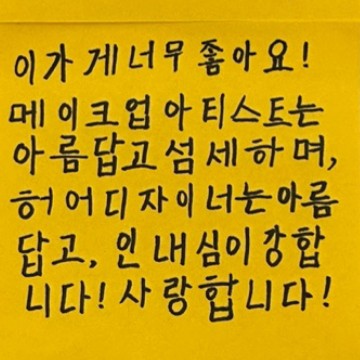 이가게너무좋아요!
메이크업아티스트는
아름답고섬세하며,
허어디자이너는아름
답고, 인내심이강합
니다! 사랑합니다!